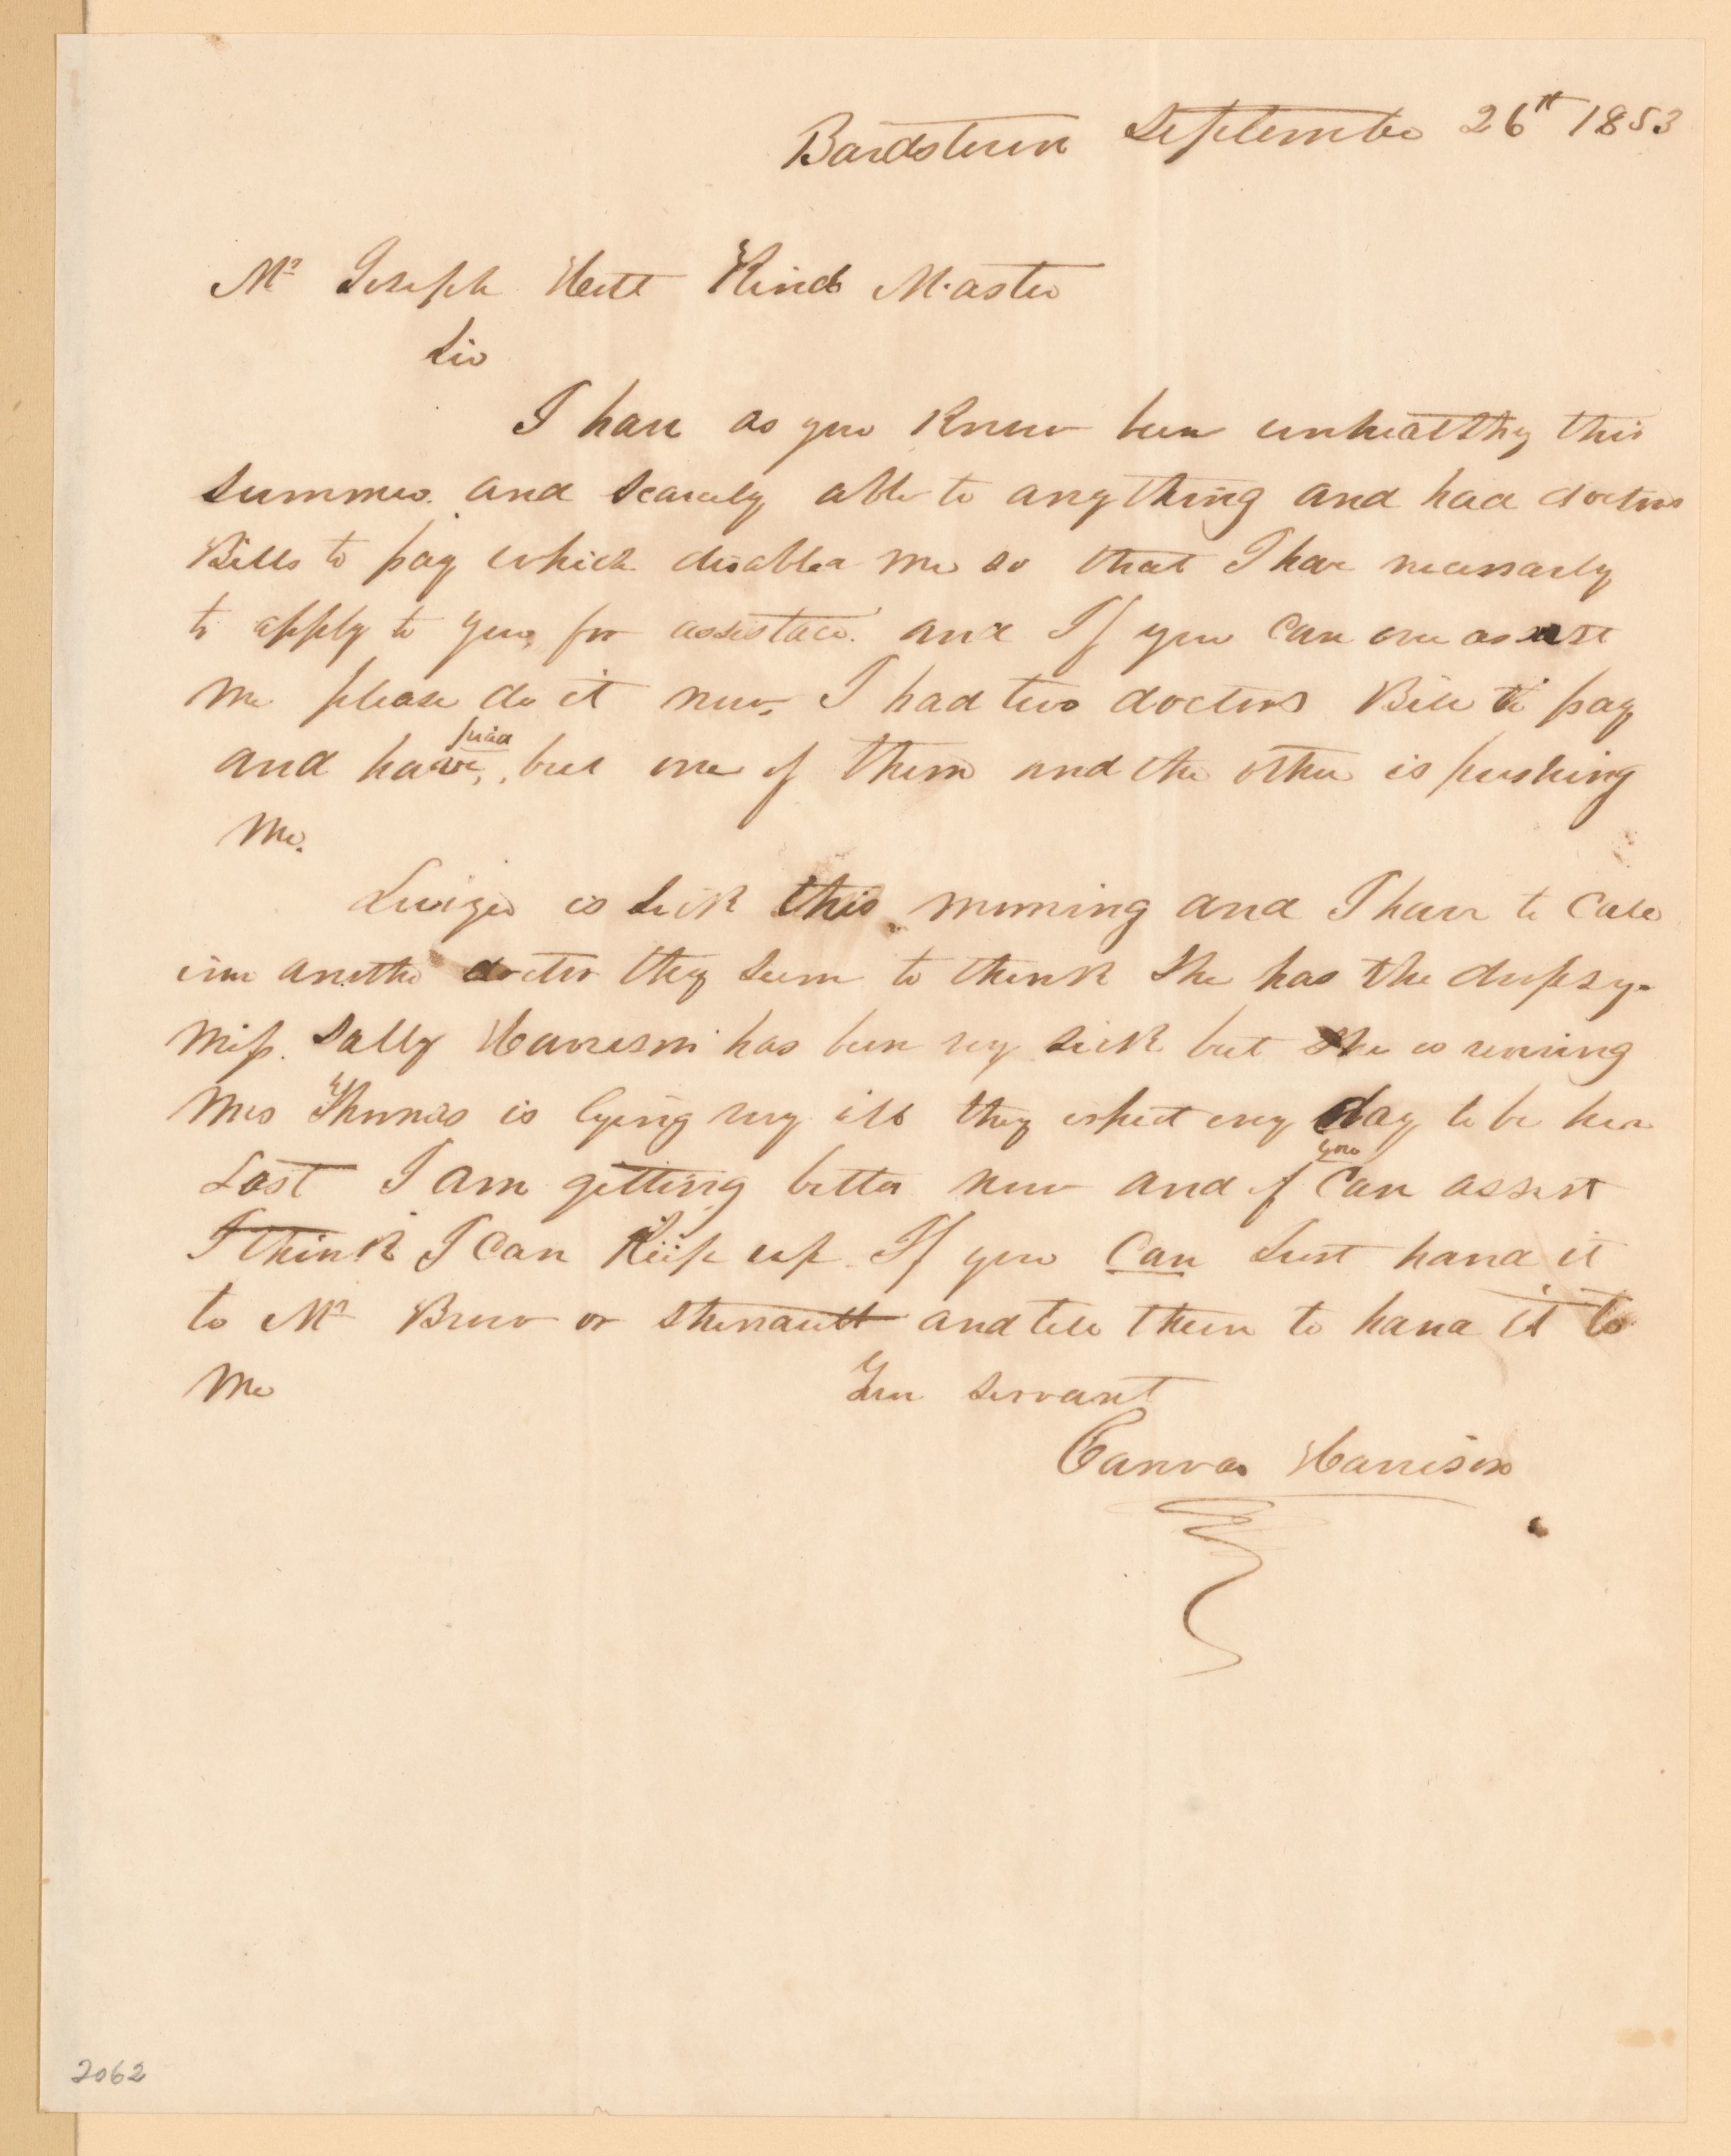 Bardstown September 26th 1853
Mr Joseph Holt Kind Master
Sir
I have as you know been unhealthy this
summer. and scarcely able to any thing and had doctors
Bills to pay which disabled me so that I have necessarly
to apply to you, for assistace. and If you can ever assist
me please do it now, I had two doctors Bill to pay
paid
and have, but one of them and the other is pushing
Me.
is sick this morning and I have to Call
inn another doctor they seem to think She has the dropsy.
Miss. Sally Harrison has been very sick but She is reviving
Mrs Thomas is lying very ill they expect evry day to be her
you
Last I am getting better now and if Can assist
I think I Can Keep up If you Can Just hand it
to Mr Brow or and tell them to hand it to
Me Your servant
Canvas Harrison
2062